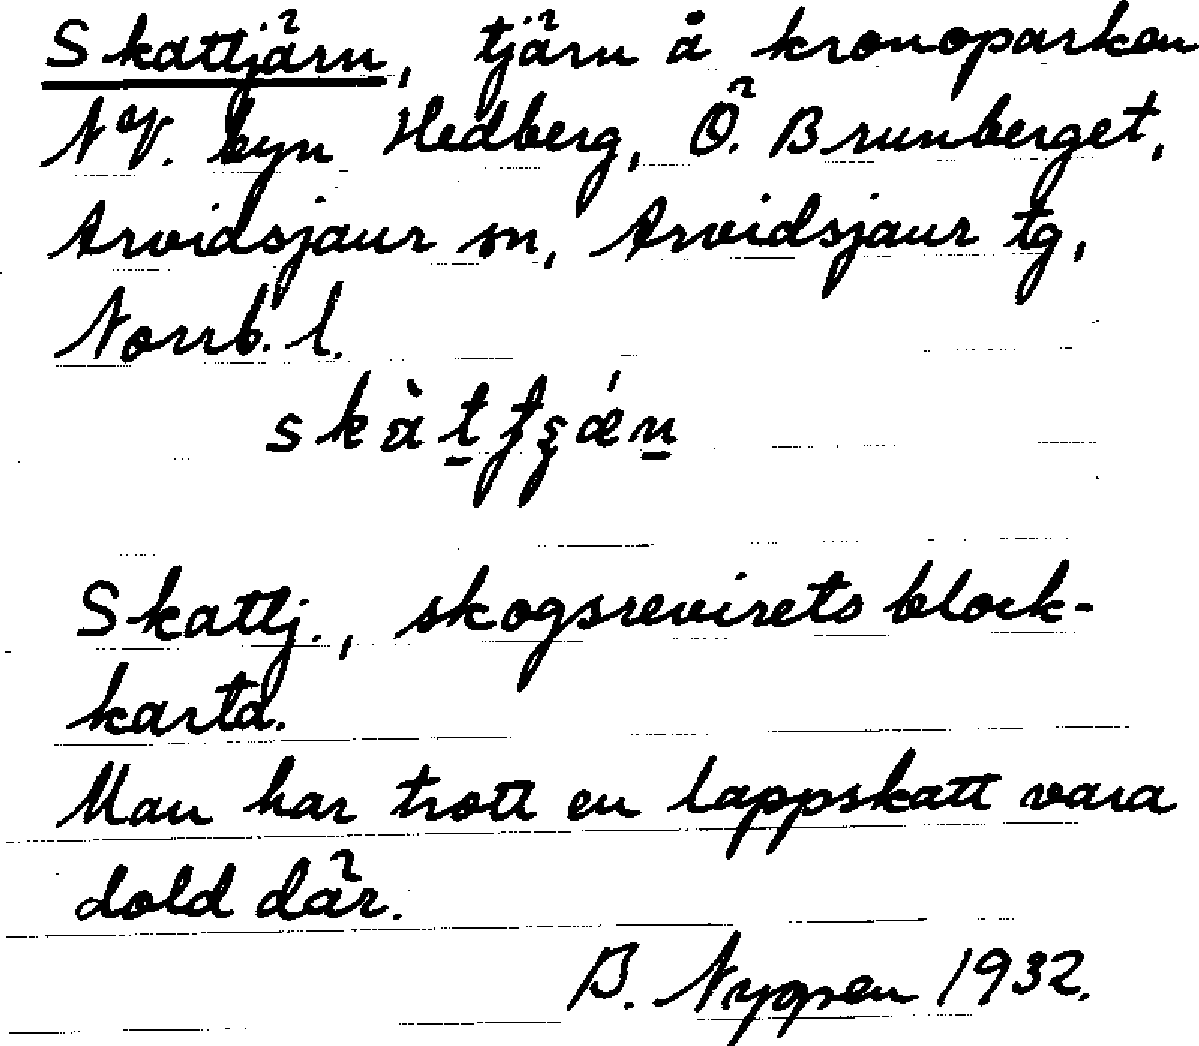 Skattjärn, tjärn å kronoparken
NV. byn Hedberg, Ö. Brunberget,
Arvidsjaur sn, Arvidsjaur tg,
Norrb. l.
Skattj., skogsrevirets block-
karta.
Man har trott en lappskatt vara
dold där.
B. Nygren 1932.